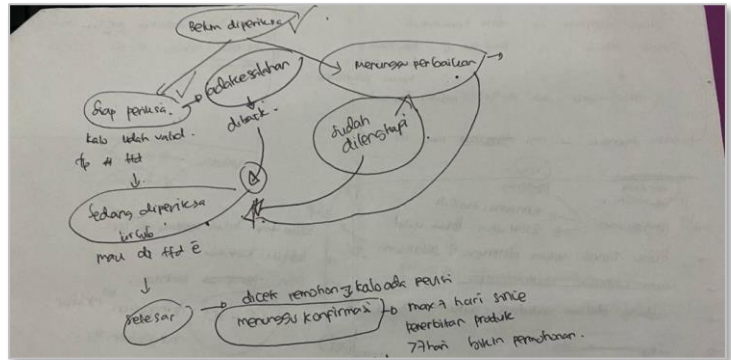 Belum diperiksa
Siap periksa.
kalo udah valid.
ttd
ada kesalahan
diback.
menunggu perbaikan
sudah
dilengkapi
sedang diperiksa
mau di ttd ē
selesai
dicek pemohon → kalo ada revisi
menunggu konfirmasi
max 7 hari since
penerbitan produk
>7 hari bikin permohonan.